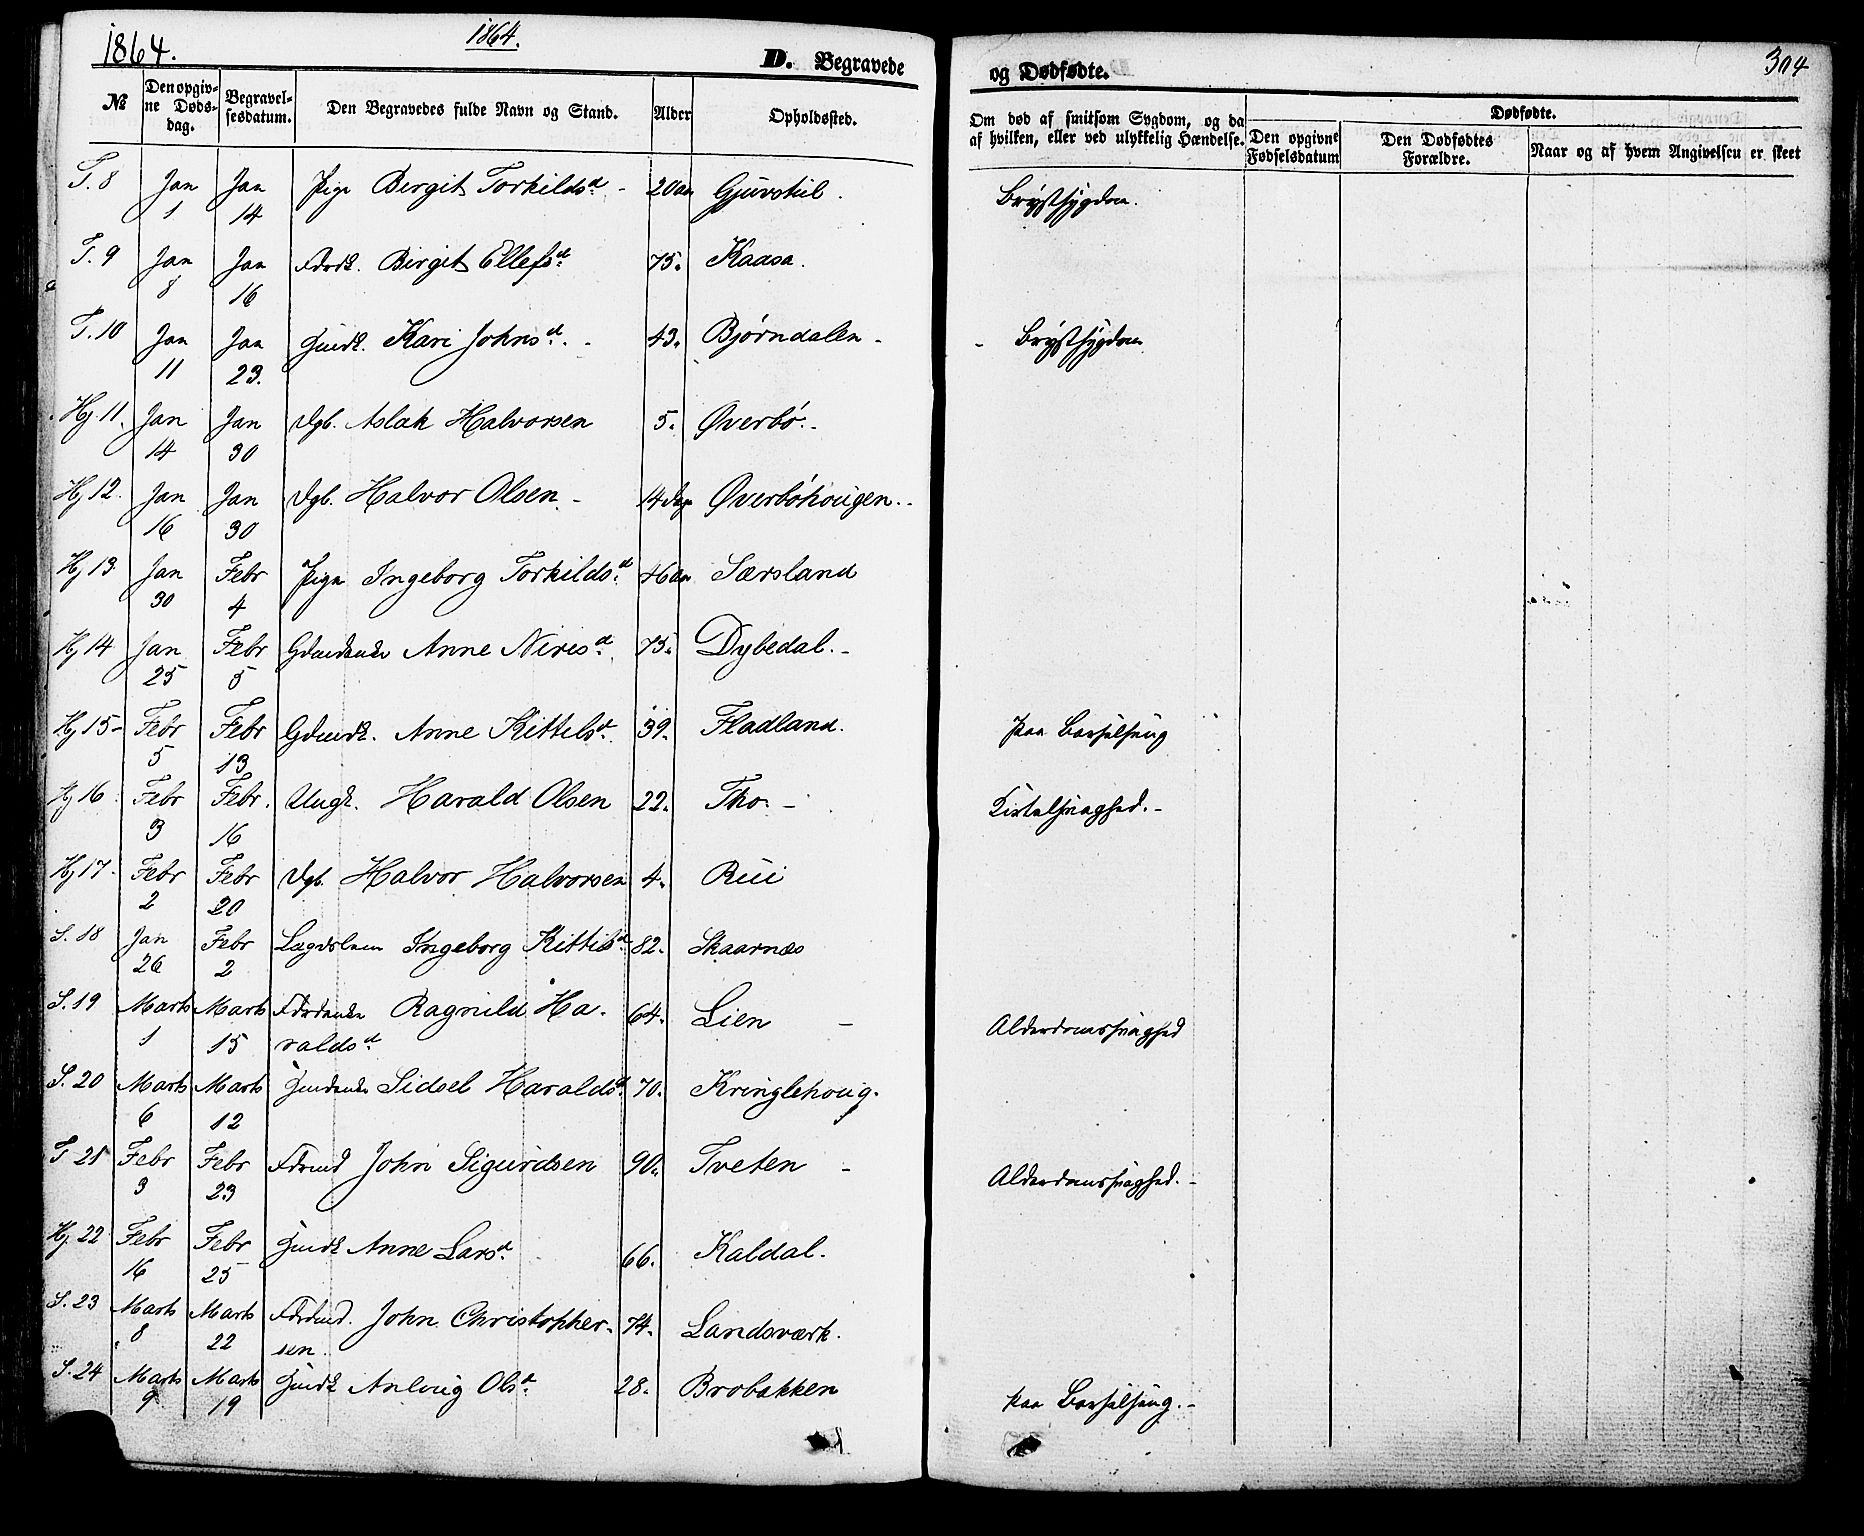 1864.
1864.
D. Begravede
og Dødfødte.
304
№
Den opgivne Døds-dag.
Begravelsesdatum.
Den Begravedes fulde Navn og Stand.
Alder
Opholdssted.
Om død af smitsom Sygdom, og da af hvilken, eller ved ulykkelig Hændelse.
Dødfødte.
Den opgivne Fødselsdatum
Den Dødfødtes Forældre.
Naar og af hvem Angivelsen er skeet
T. 8 Jan 1 Jan 14 Pige Birgit Torkildsd. 20 aar Gjuvstul. Brystsygdom.
T. 9 Jan 8 Jan 16 Birgit Ellefsd. 75. Kaasa.
T. 10 Jan 11 Jan 23. Kari Johnsd. 43. Bjørndalen Brystsygdom
Hj 11. Jan 14 Jan 30 Dgb. Aslak Halvorsen 5. Øverbø.
Hj 12. Jan 16 Jan 30 Dgb. Halvor Olsen 14 Dage Øverbøhougen.
Hj 13. Jan 30 Febr 4 Pige Ingeborg Torkildsd. 46 aar Særsland
Hj 14 Jan 25 Febr 5 Anne Nirisd. 75. Dybedal.
Hj 15 Febr 5 Febr 13 Anne Kittilsd. 39. Fladland. paa Barselseng
Hj 16. Febr 3 Febr. 16 Ungk. Harald Olsen 22. Tho. Kirtelsvaghed.
Hj 17. Febr 2 Febr 20 Dgb. Halvor Halvorsen 4. Rui
S. 18 Jan 26 Febr 2 Lægdslem Ingeborg Kittilsd. 82. Skaarnæs
S. 19 Marts 1 Marts 15 Ragnild Ha-
raldsd. 64. Lien Alderdomssvaghed
S. 20 Marts 6 Marts 12 Sidsel Haraldsd. 70. Kringlehoug.
T 21 Febr 3 Febr 23 John Sigurdsen 90. Tveten Alderdomssvaghed.
Hj. 22 Febr 16 Febr 25 Anne Larsd. 66. Kaldal.
S. 23 Marts 8 Marts 22 John Christopher-
sen. 74. Landsværk.
S. 24 Marts 9 Marts 19 Anlaug Olsd. 28. Brobakken paa Barselseng.